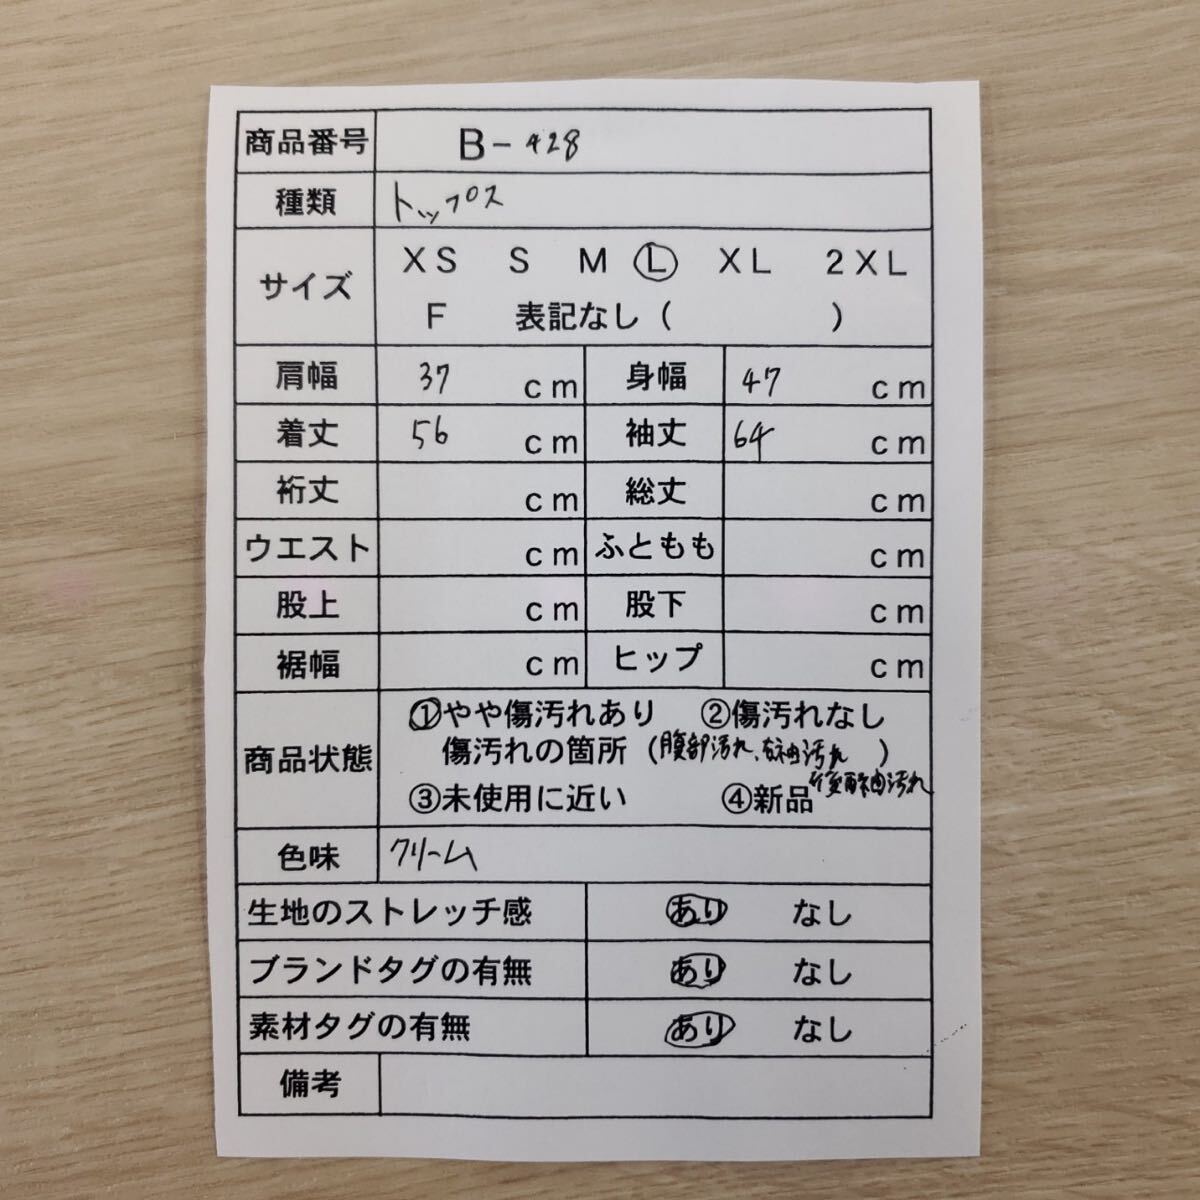 商品番号 B-428
種類 トップス
サイズ XS S M L XL 2XL
F 表記なし( )
肩幅 37 cm 身幅 47 cm
着丈 56 cm 袖丈 64 cm
裄丈 cm 総丈 cm
ウエスト cm ふともも cm
股上 cm 股下 cm
裾幅 cm ヒップ cm
商品状態 ①やや傷汚れあり ②傷汚れなし
傷汚れの箇所(腹部汚れ、右袖汚れ )
袖汚れ
③未使用に近い ④新品
色味 クリーム
生地のストレッチ感 あり なし
ブランドタグの有無 あり なし
素材タグの有無 あり なし
備考